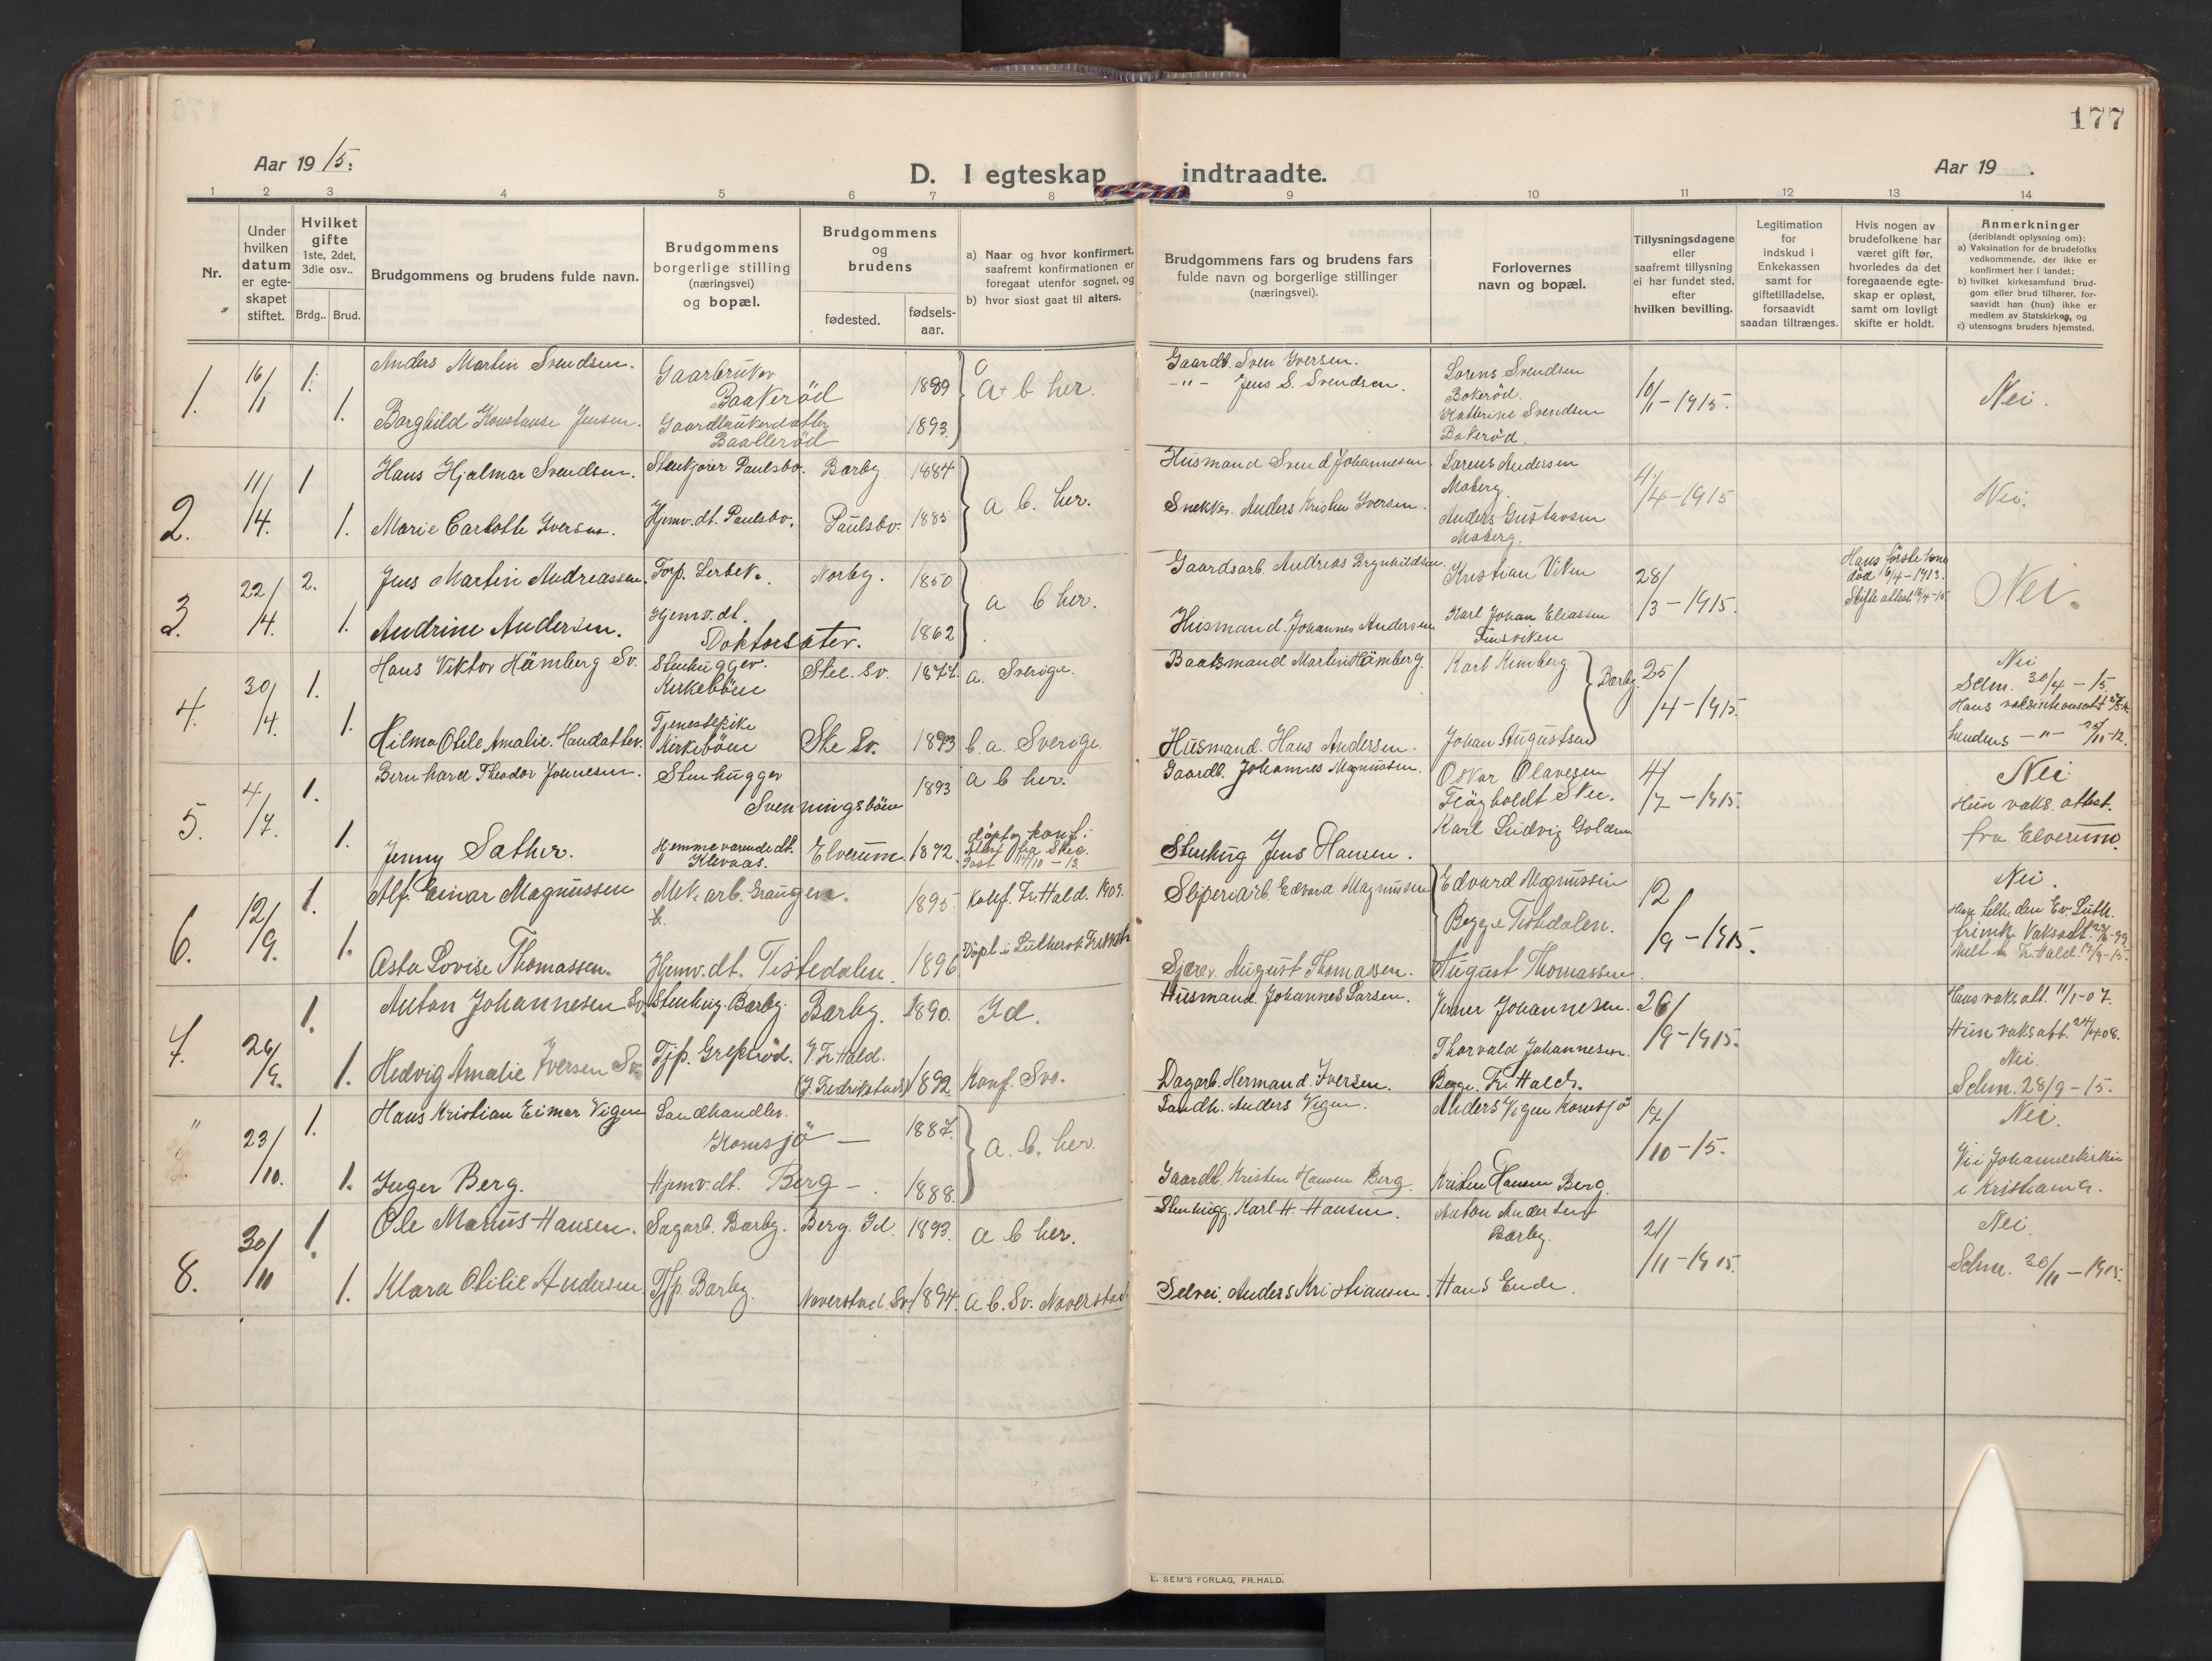 177
Aar 19 15.
D. I egteskap indtraadte.
Aar 19 .
1 2 3 4 5 6 7 8 9 10 11 12 13 14
Nr.
Under hvilken datum er egte-skapet stiftet.
Hvilket gifte 1ste, 2det, 3die osv..
Brdg.. Brud.
Brudgommens og brudens fulde navn.
Brudgommens borgerlige stilling (næringsvei) og bopæl.
Brudgommens og brudens
fødested.
fødsels-aar.
a) Naar og hvor konfirmert, saafremt konfirmationen er foregaat utenfor sognet, og
b) hvor sidst gaat til alters.
Brudgommens fars og brudens fars fulde navn og borgerlige stillinger (næringsvei).
Forlovernes navn og bopæl.
Tillysningsdagene eller saafremt tillysning ei har fundet sted, efter hvilken bevilling.
Legitimation for indskud i Enkekassen samt for giftetilladelse, forsaavidt saadan tiltrænges.
Hvis nogen av brudefolkene har været gift før, hvorledes da det foregaaende egte-skap er opløst, samt om lovligt skifte er holdt.
Anmerkninger
(deriblandt oplysning om):
a) Vaksination for de brudefolks vedkommende, der ikke er konfirmert her i landet;
b) hvilket kirkesamfund brud-gom eller brud tilhører, for-saavidt han (hun) ikke er medlem av Statskirken, og
c) utensogns bruders hjemsted.
1. 16/1 1. Anders Martin Svendsen. Gaarbruker Baakerød 1889 a + b her. Gaardb. Sven Iversen. Lorens Svendsen Bokerød. 10/1-1915. Nei.
1. Borghild Konstanse Jensen. Gaardbrukerdatter 1893. -"- Jens S. Svendsen. Katherine Svendsen Bokerød.
2. 11/4. 1 Hans Hjalmar Svendsen. Stenkjører Paulsbo. Børby 1884 a b. her. Husmand Svend Johannesen. Lorens Andersen Moberg. 4/4-1915 Nei.
1. Marie Carlotte Iversen. Hjemv. dt. Paulsbo. Paulsbo. 1885 Snekker. Anders Kristen Iversen. Anders Gustavsen Moberg.
3. 22/4. 2. Jens Martin Andreassen. Torp. Lerbek. Norby. 1850 a b her. Gaardsarb. Andreas Brynhildsen. Kristian Viken 28/3-1915. Hans første kone død 6/4-1913. Nei.
1. Andrine Andersen. Hjemv. dt. Doktorsæter. 1862 Husmand. Johannes Andersen Karl Johan Eliassen
4. 30/4. 1. Hans Viktor Hämberg Sv. Stenhugger. Kirkebøen Skee. Sv. 1877. a. Sverige. Baatsmand Martin Hämberg Karl Kemberg Børby. 25/4-1915. Nei Selm. 30/4-15.
1. Hilma Otile Amalie. Hansdatter. Tjenestepike Kirkebøen Ske Sv. 1893 b. a. Sverige. Husmand. Hans Andersen. Johan Augustsen
5. 4/7. 1. Bernhard Theodor Johnesen. Stenhugger Svenningsbøen 1893 a b her. Gaardb. Johannes Magnussen. Oskar Olavesen Skee. 4/7-1915. Nei
1. Jenny Sæther. Hemmeværende dt. Klevaas. Elverum. 1892. Stenhug Jens Hansen. Karl Ludvig Hun vaks. attest. fra Elverum.
6. 12/9. 1. Alf Einar Magnussen Mek. arb. 1895 Konf. Fr. Hald. 1909. Sliperiarb. Edvard Magnussen Edvard Magnussen 12/9-1915. Nei.
1. Asta Lovise Thomassen. Hjemv. dt. Tistedalen. 1896 August Thomassen. Begge Tistedalen. August Thomassen.
7. 26/9. 1. Anton Johannesen Sv. Stenhug. Børby. Børby. 1890. Id. Husmand. Johannes Larsen. Johannesen. 26/9-1915. Hans vaks att. 11/1-07.
1. Hedvig Amalie Iversen Tjp. Grepsrød. Fr. Hald. (Fredrikstad) 1892 Konf. Svs. Dagarb. Herman d. Iversen. Thorvald Johannesen. Begge. Fr. Hald. Hun vaks att. Nei. Selm. 28/9-15.
" 23/10. 1. Hans Kristian Eimar Vigen Landhandler. Kornsjø — 1887. a. b. her. Landh. Anders Vigen. Anders Vigen Kornsjø 17/10-15. Nei.
1. Inger Berg. Hjemv. dt. Berg —. 1888. Gaardb. Kristen Hansen Berg. Kristen Hansen Berg. Vi i Johanneskirken i Kristiania.
8. 30/11 1. Ole Marius Hansen. Sagarb. Børby. Berg. Id. 1893. a b her. Stenhugg. Karl H. Hansen. Anton Andersen Børby. 21/11-1915. Nei. Selm. 30/11-1915.
1. Klara Otilie Andersen Tjp. Børby. Naverstad. Sv. 1894. a b. Sv. Naverstad. Selvei. Anders Kristiansen. Hans Ende.
E. SEM'S FORLAG, FR.HALD.